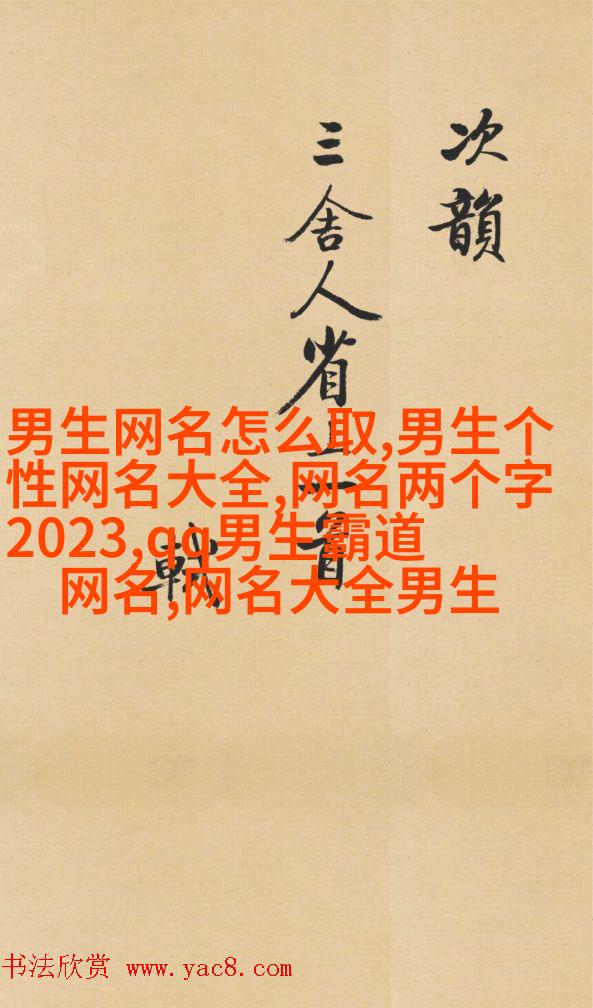 次韻
三舍人省上一首
軾
男生网名怎么取,男生个
性网名大全,网名两个字
2023,qq男生霸道
网名,网名大全男生
书法欣赏 www.yac8.com